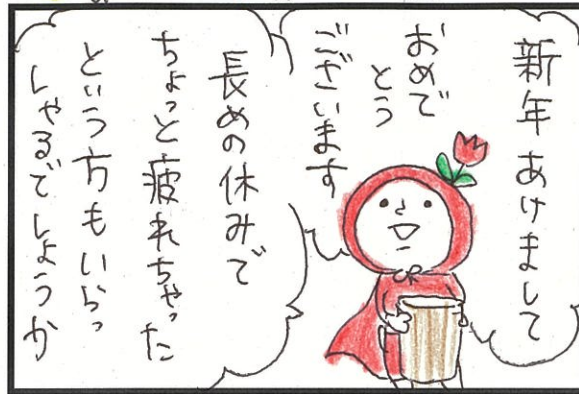 新年あけまして
おめで
とう
ございます
長めの休みで
ちょっと疲れちゃった
という方もいらっ
しゃるでしょうか